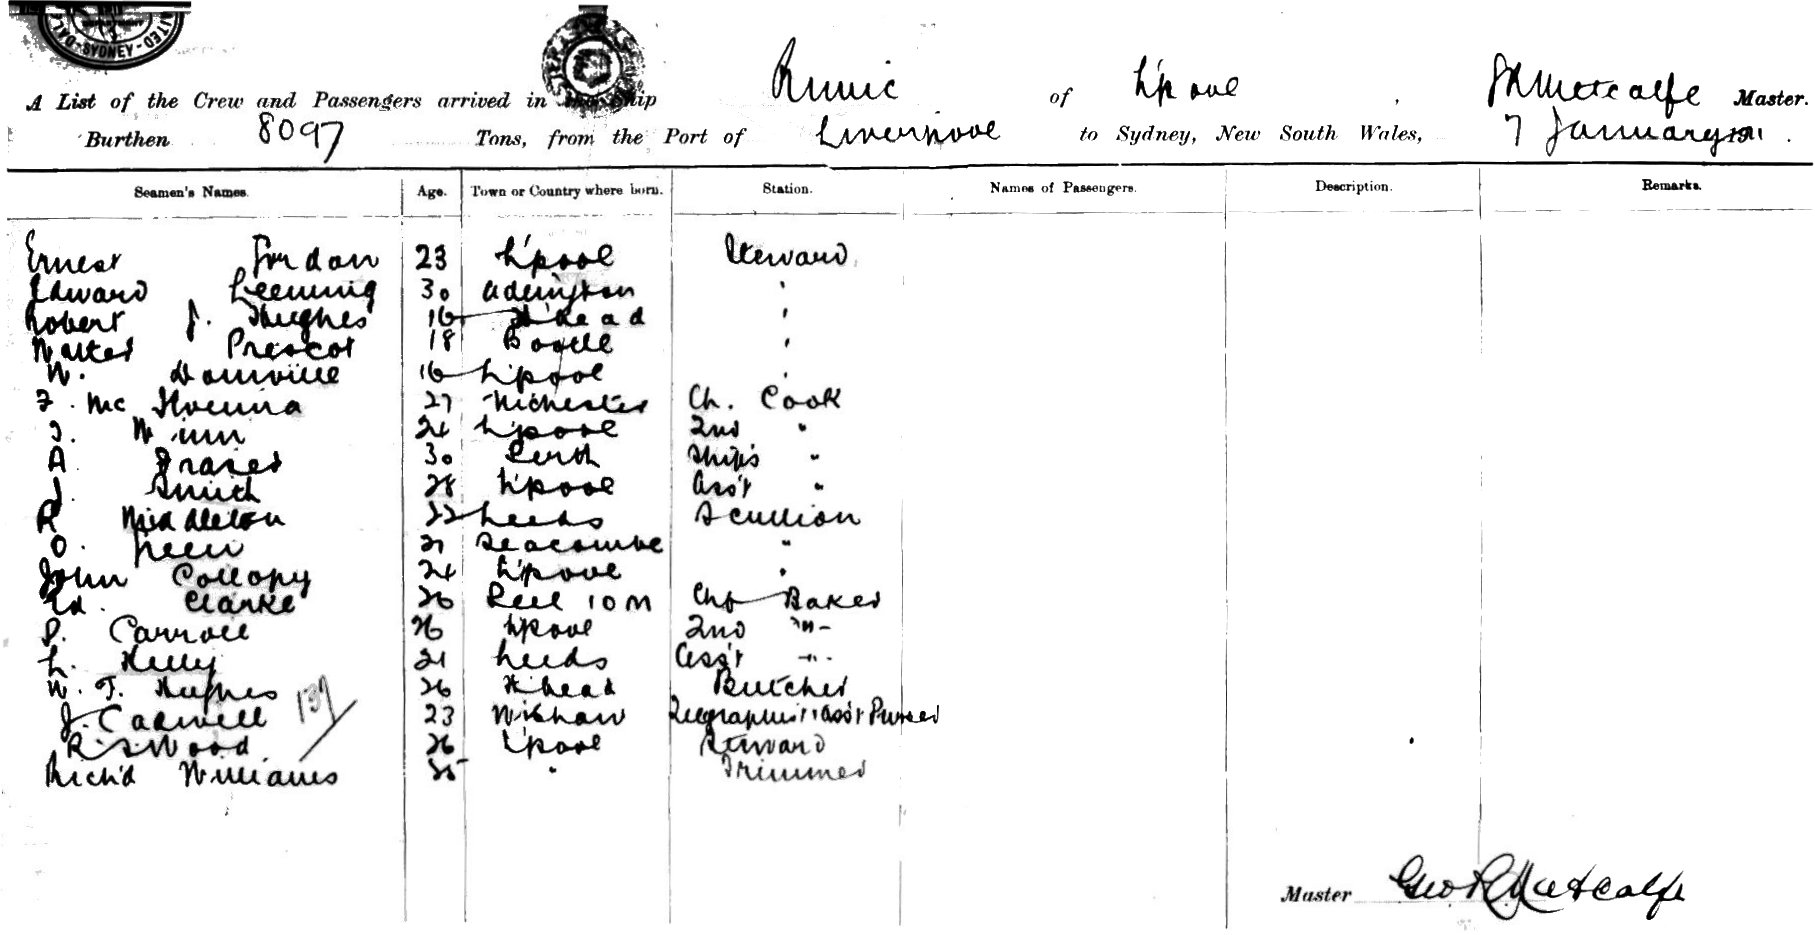 SYDNEY
A List of the Crew and Passengers arrived in the Ship Runic of L'pool, G R Metcalfe Master.
Burthen 8097 Tons, from the Port of Liverpool to Sydney, New South Wales, 7 January 1911.
Seamen's Names. Age. Town or Country where born. Station. Names of Passengers. Description. Remarks.
Ernest Jordan 23 L'pool Steward
Edward Leeming 30 Adlington '
Robert J. Hughes 16 B'head '
Walter Prescot 18 Bootle '
W. Domville 16 L'pool '
F. Mc 27 Ch. Cook
J. Winn 24 L'pool 2nd "
A Fraser 30 Perth Ship's "
J. Smith 28 L'pool Ass't "
R Middleton 22 Leeds Scullion
O. Green 21 Seacombe "
John Collopy 24 L'pool '
Ed. Clarke 26 Peel IOM Chf Baker
P. Carroll 26 L'pool 2nd "
L. Kelly 21 Leeds Ass't "
W. T. Hughes 26 B'head Butcher
J. Cadwell 23 Wishaw Telegraphist & Ass't Purser
137
R. S. Wood 26 L'pool Steward
Rich'd Williams 35 " Trimmer
Master Geo R Metcalfe